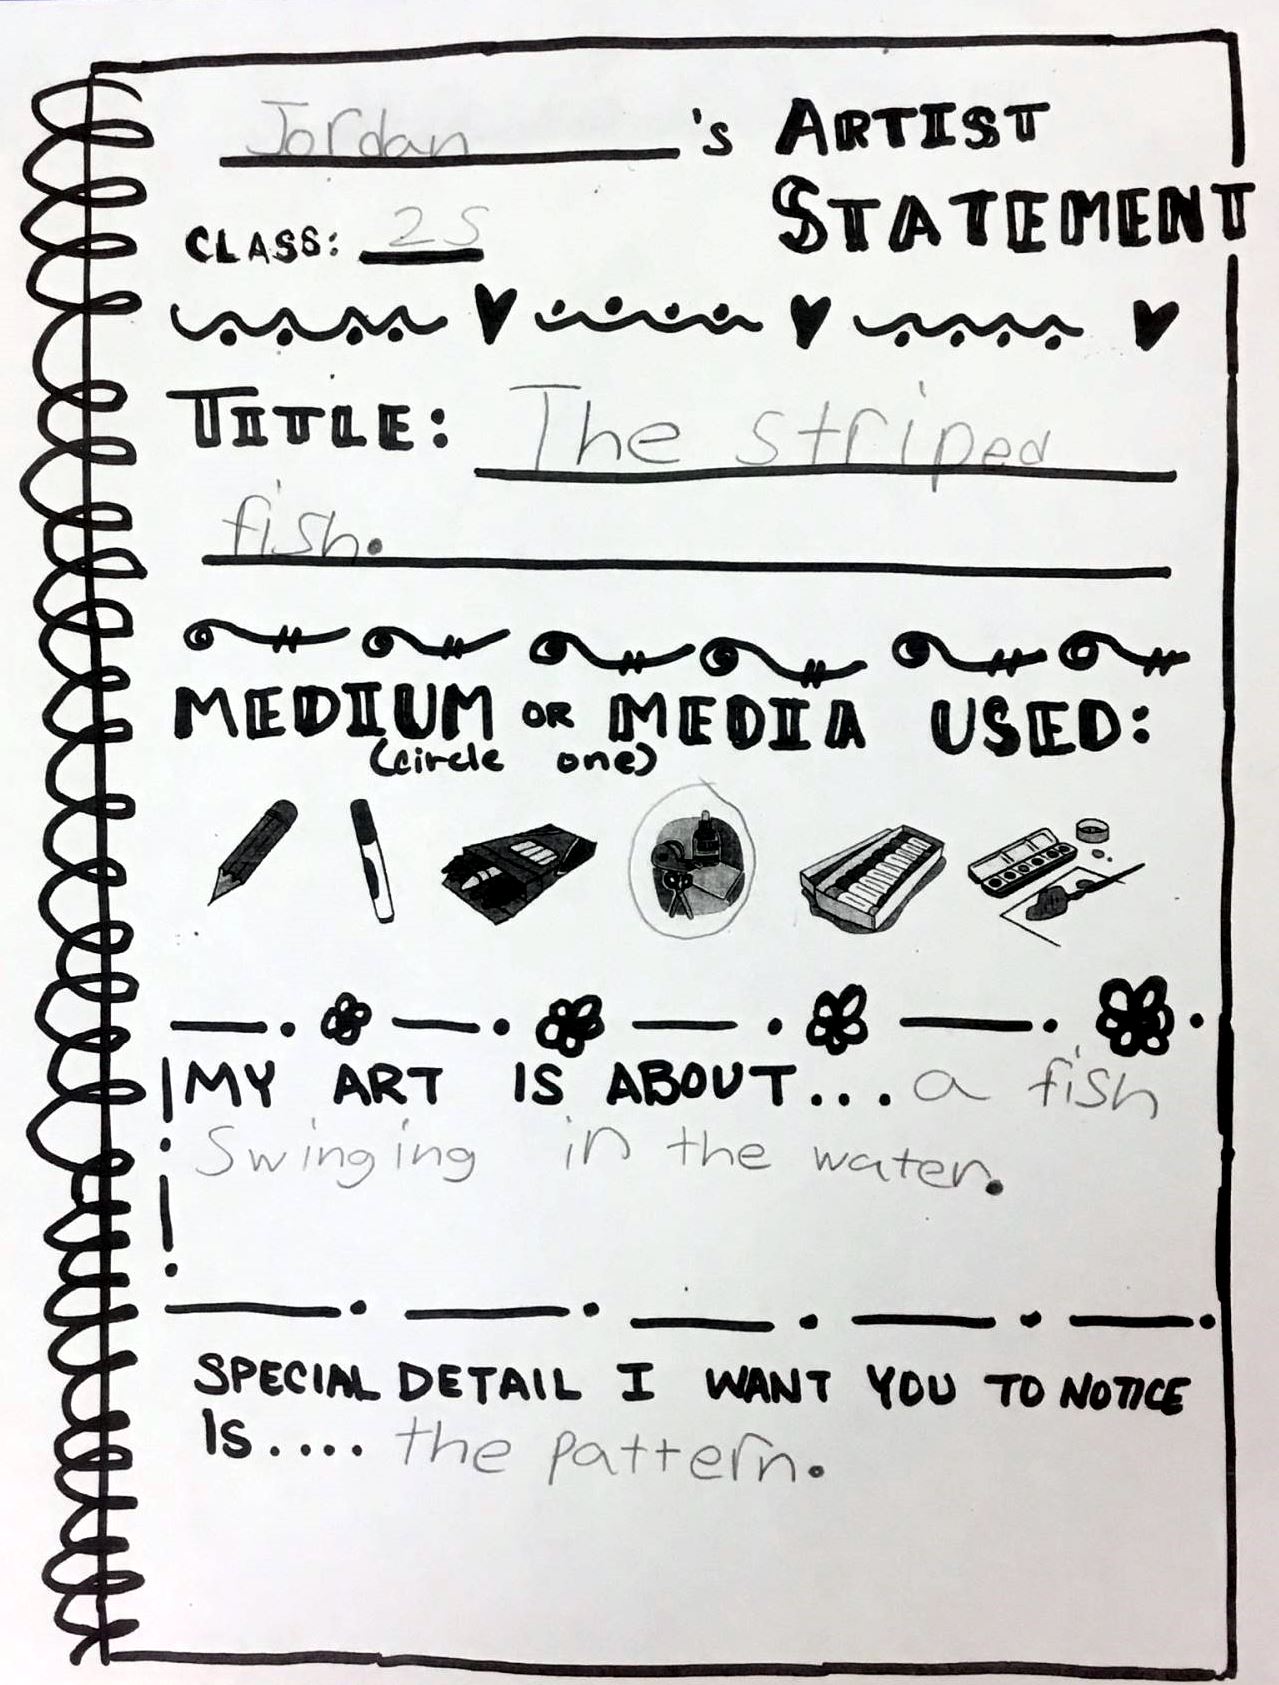 Jordan 's ARTIST
STATEMENT
CLASS: 2S
TITLE: The striped
fish.
MEDIUM OR MEDIA USED:
(circle one)
MY ART IS ABOUT... a fish
Swinging in the water.
SPECIAL DETAIL I WANT YOU TO NOTICE
IS.... the pattern.